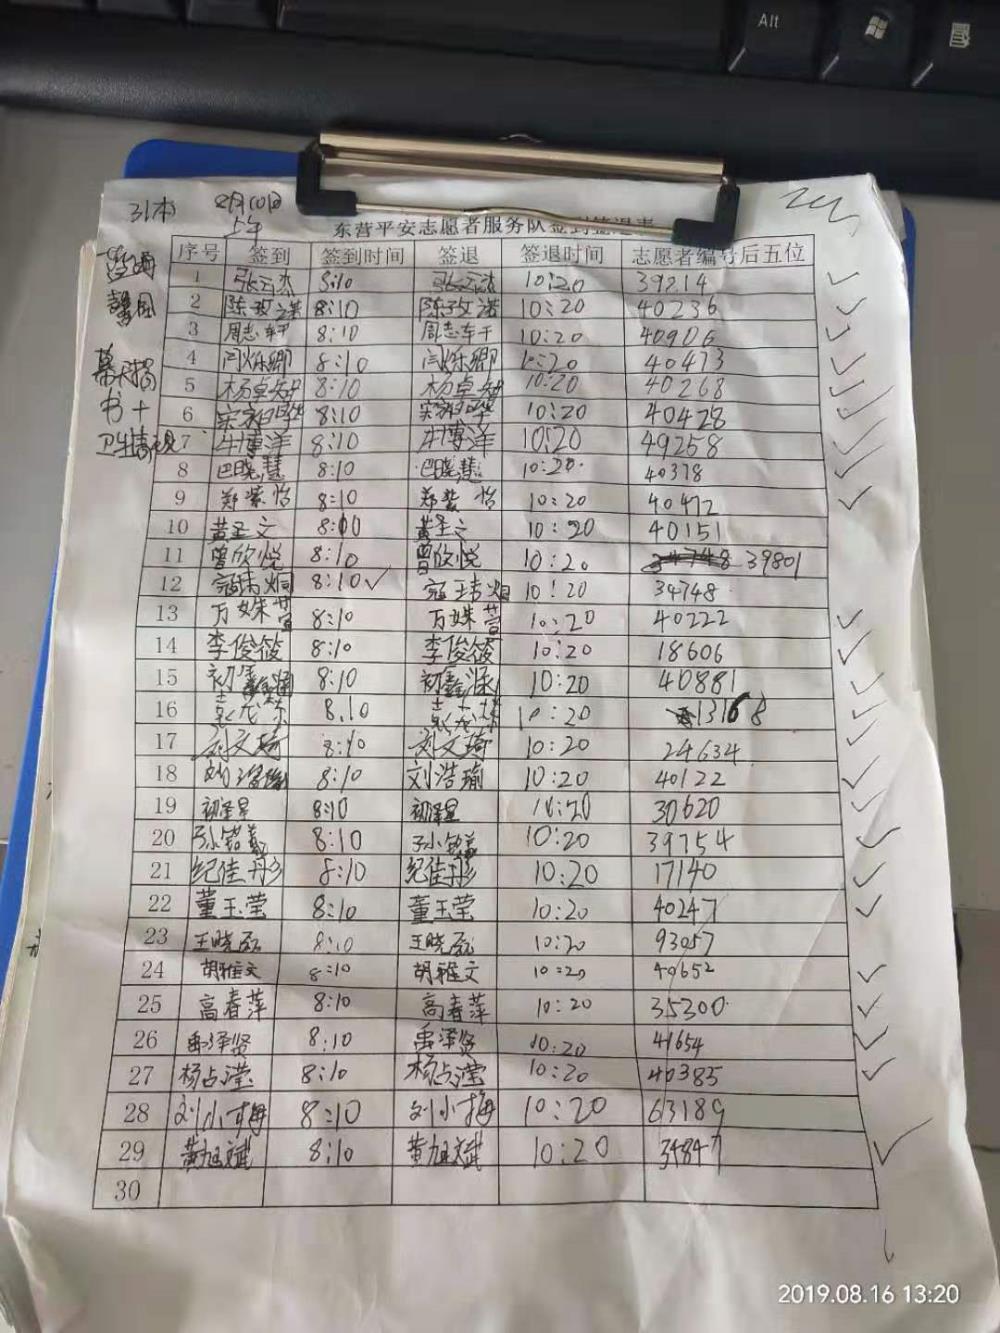 Alt
31本 8月10日
上午
东营平安志愿者服务队签到签退表
序号 签到 签到时间 签退 签退时间 志愿者编号后五位
1 张云杰 8:10 张云杰 10:20 39214
2 陈孜諾 8:10 陈孜諾 10:20 40236
3 周志车干 8:10 周志车干 10:20 40906
4 闫烁卿 8:10 闫烁卿 10:20 40473
5 杨卓 8:10 杨卓 10:20 40268
6 宋 8:10 宋 10:20 40428
7 牛博洋 8:10 牛博洋 10:20 49258
8 巴晓慧 8:10 巴晓慧 10:20 40378
9 郑紫怡 8:10 郑紫怡 10:20 40472
10 黄圣文 8:10 黄圣文 10:20 40151
11 曾欣悦 8:10 曾欣悦 10:20 39801
12 寇玮炯 8:10 寇玮炯 10:20 34748
13 万姝萱 8:10 万姝萱 10:20 40222
14 李俊筱 8:10 李俊筱 10:20 18606
15 初鑫涵 8:10 初鑫涵 10:20 40881
16 袁 8.10 袁 10:20 13168
17 刘文琦 8:10 刘文琦 10:20 24634
18 刘浩瑜 8:10 刘浩瑜 10:20 40122
19 初泽昱 8:10 初泽昱 10:20 30620
20 孙铭義 8:10 孙铭義 10:20 39754
21 纪佳彤 8:10 纪佳彤 10:20 17140
22 董玉莹 8:10 董玉莹 10:20 40247
23 王晓磊 8:10 王晓磊 10:20 93057
24 胡雅文 8:10 胡雅文 10:20 49652
25 高春萍 8:10 高春萍 10:20 35300
26 禹泽贤 8:10 禹泽贤 10:20 41654
27 杨占滢 8:10 杨占滢 10:20 40385
28 刘小梅 8:10 刘小梅 10:20 63189
29 黄旭斌 8:10 黄旭斌 10:20 34847
30
书+
卫生
2019.08.16 13:20